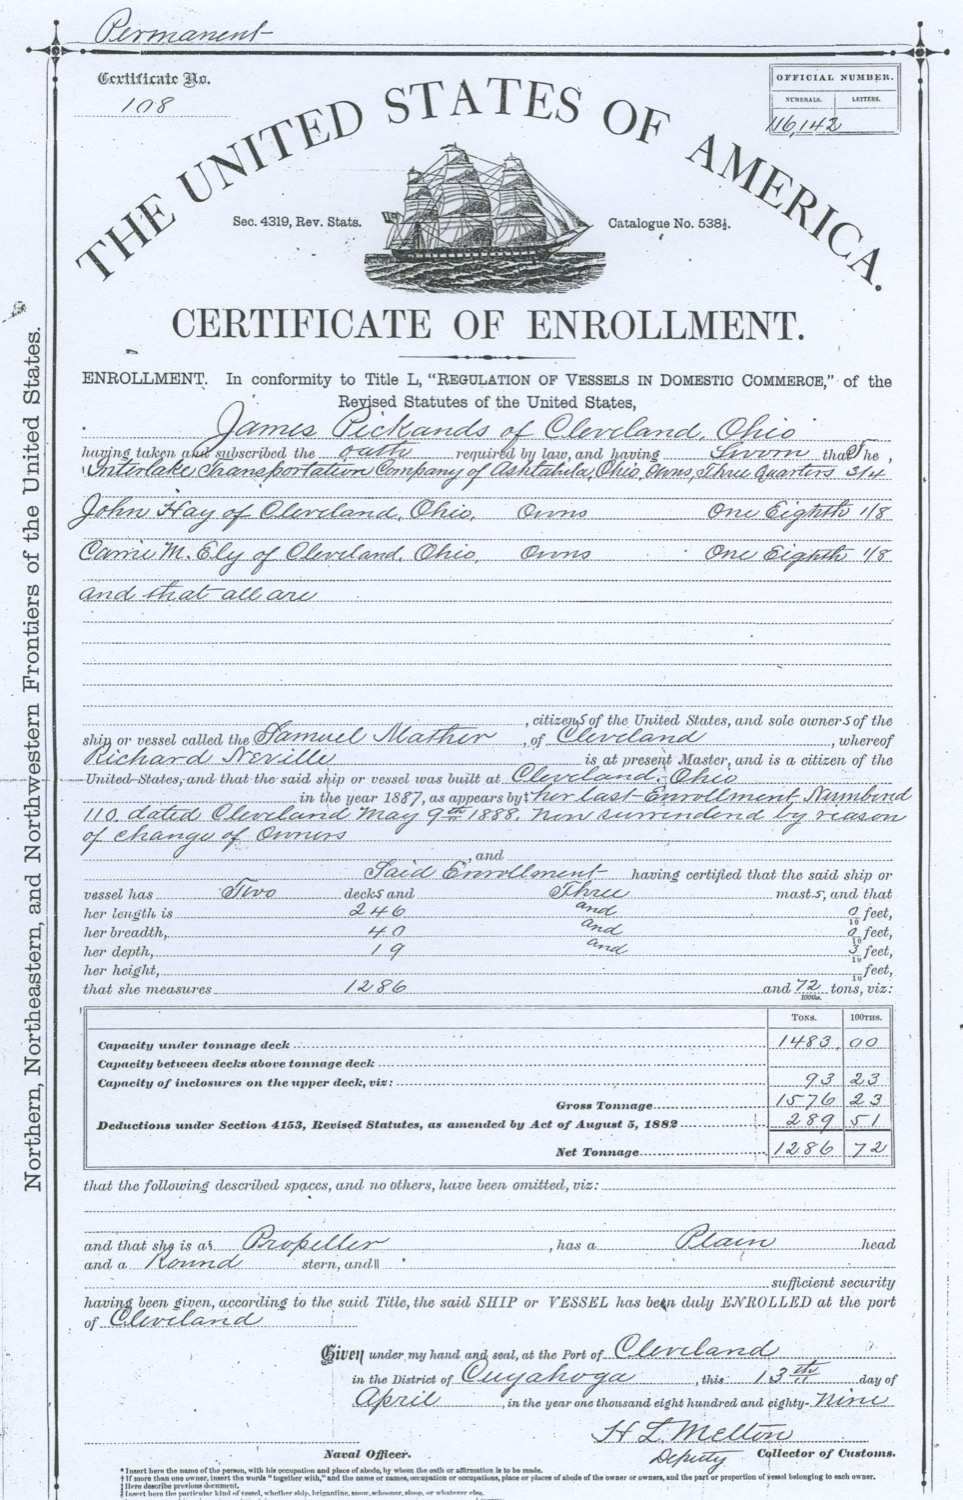 Permanent
Certificate No.
108
OFFICIAL NUMBER.
NUMERALS. LETTERS.
116,142
THE UNITED STATES OF AMERICA.
Sec. 4319, Rev. Stats.
Catalogue No. 538½.
CERTIFICATE OF ENROLLMENT.
ENROLLMENT. In conformity to Title L, "REGULATION OF VESSELS IN DOMESTIC COMMERCE," of the
Revised Statutes of the United States,
James Pickands of Cleveland, Ohio
having taken and subscribed the oath required by law, and having Sworn that The
Interlake Transportation Company of Ashtabula, Ohio, Owns, Three Quarters 3/4
John Hay of Cleveland, Ohio, Owns One Eighth 1/8
Carrie M. Ely of Cleveland, Ohio, Owns One Eighth 1/8
and that all are
, citizens of the United States, and sole owners of the
ship or vessel called the Samuel Mather , of Cleveland , whereof
Richard Neville is at present Master, and is a citizen of the
United States, and that the said ship or vessel was built at Cleveland, Ohio
in the year 1887, as appears by‡ her last Enrollment, Numbered
110. dated Cleveland May 9th 1888. Now surrendered by reason
of change of Owners
, and
Said Enrollment having certified that the said ship or
vessel has Two decks and Three masts, and that
her length is 246 and 0/10 feet,
her breadth, 40 and 0/10 feet,
her depth, 19 and 3/10 feet,
her height, /10 feet,
that she measures 1286 and 72/100ths. tons, viz:
TONS. 100THS.
Capacity under tonnage deck 1483 00
Capacity between decks above tonnage deck
Capacity of inclosures on the upper deck, viz: 93 23
Gross Tonnage 1576 23
Deductions under Section 4153, Revised Statutes, as amended by Act of August 5, 1882 289 51
Net Tonnage 1286 72
that the following described spaces, and no others, have been omitted, viz:
and that she is a§ Propeller , has a Plain head
and a Round stern, and‖
sufficient security
having been given, according to the said Title, the said SHIP or VESSEL has been duly ENROLLED at the port
of Cleveland
Given under my hand and seal, at the Port of Cleveland
in the District of Cuyahoga , this 13th day of
April , in the year one thousand eight hundred and eighty- Nine
H L Melton
Naval Officer. Deputy Collector of Customs.
* Insert here the name of the person, with his occupation and place of abode, by whom the oath or affirmation is to be made.
† If more than one owner, insert the words "together with," and the name or names, occupation or occupations, place or places of abode of the owner or owners, and the part or proportion of vessel belonging to each owner.
‡ Here describe previous document.
§ Insert here the particular kind of vessel, whether ship, brigantine, snow, schooner, sloop, or whatever else.
Northern, Northeastern, and Northwestern Frontiers of the United States.